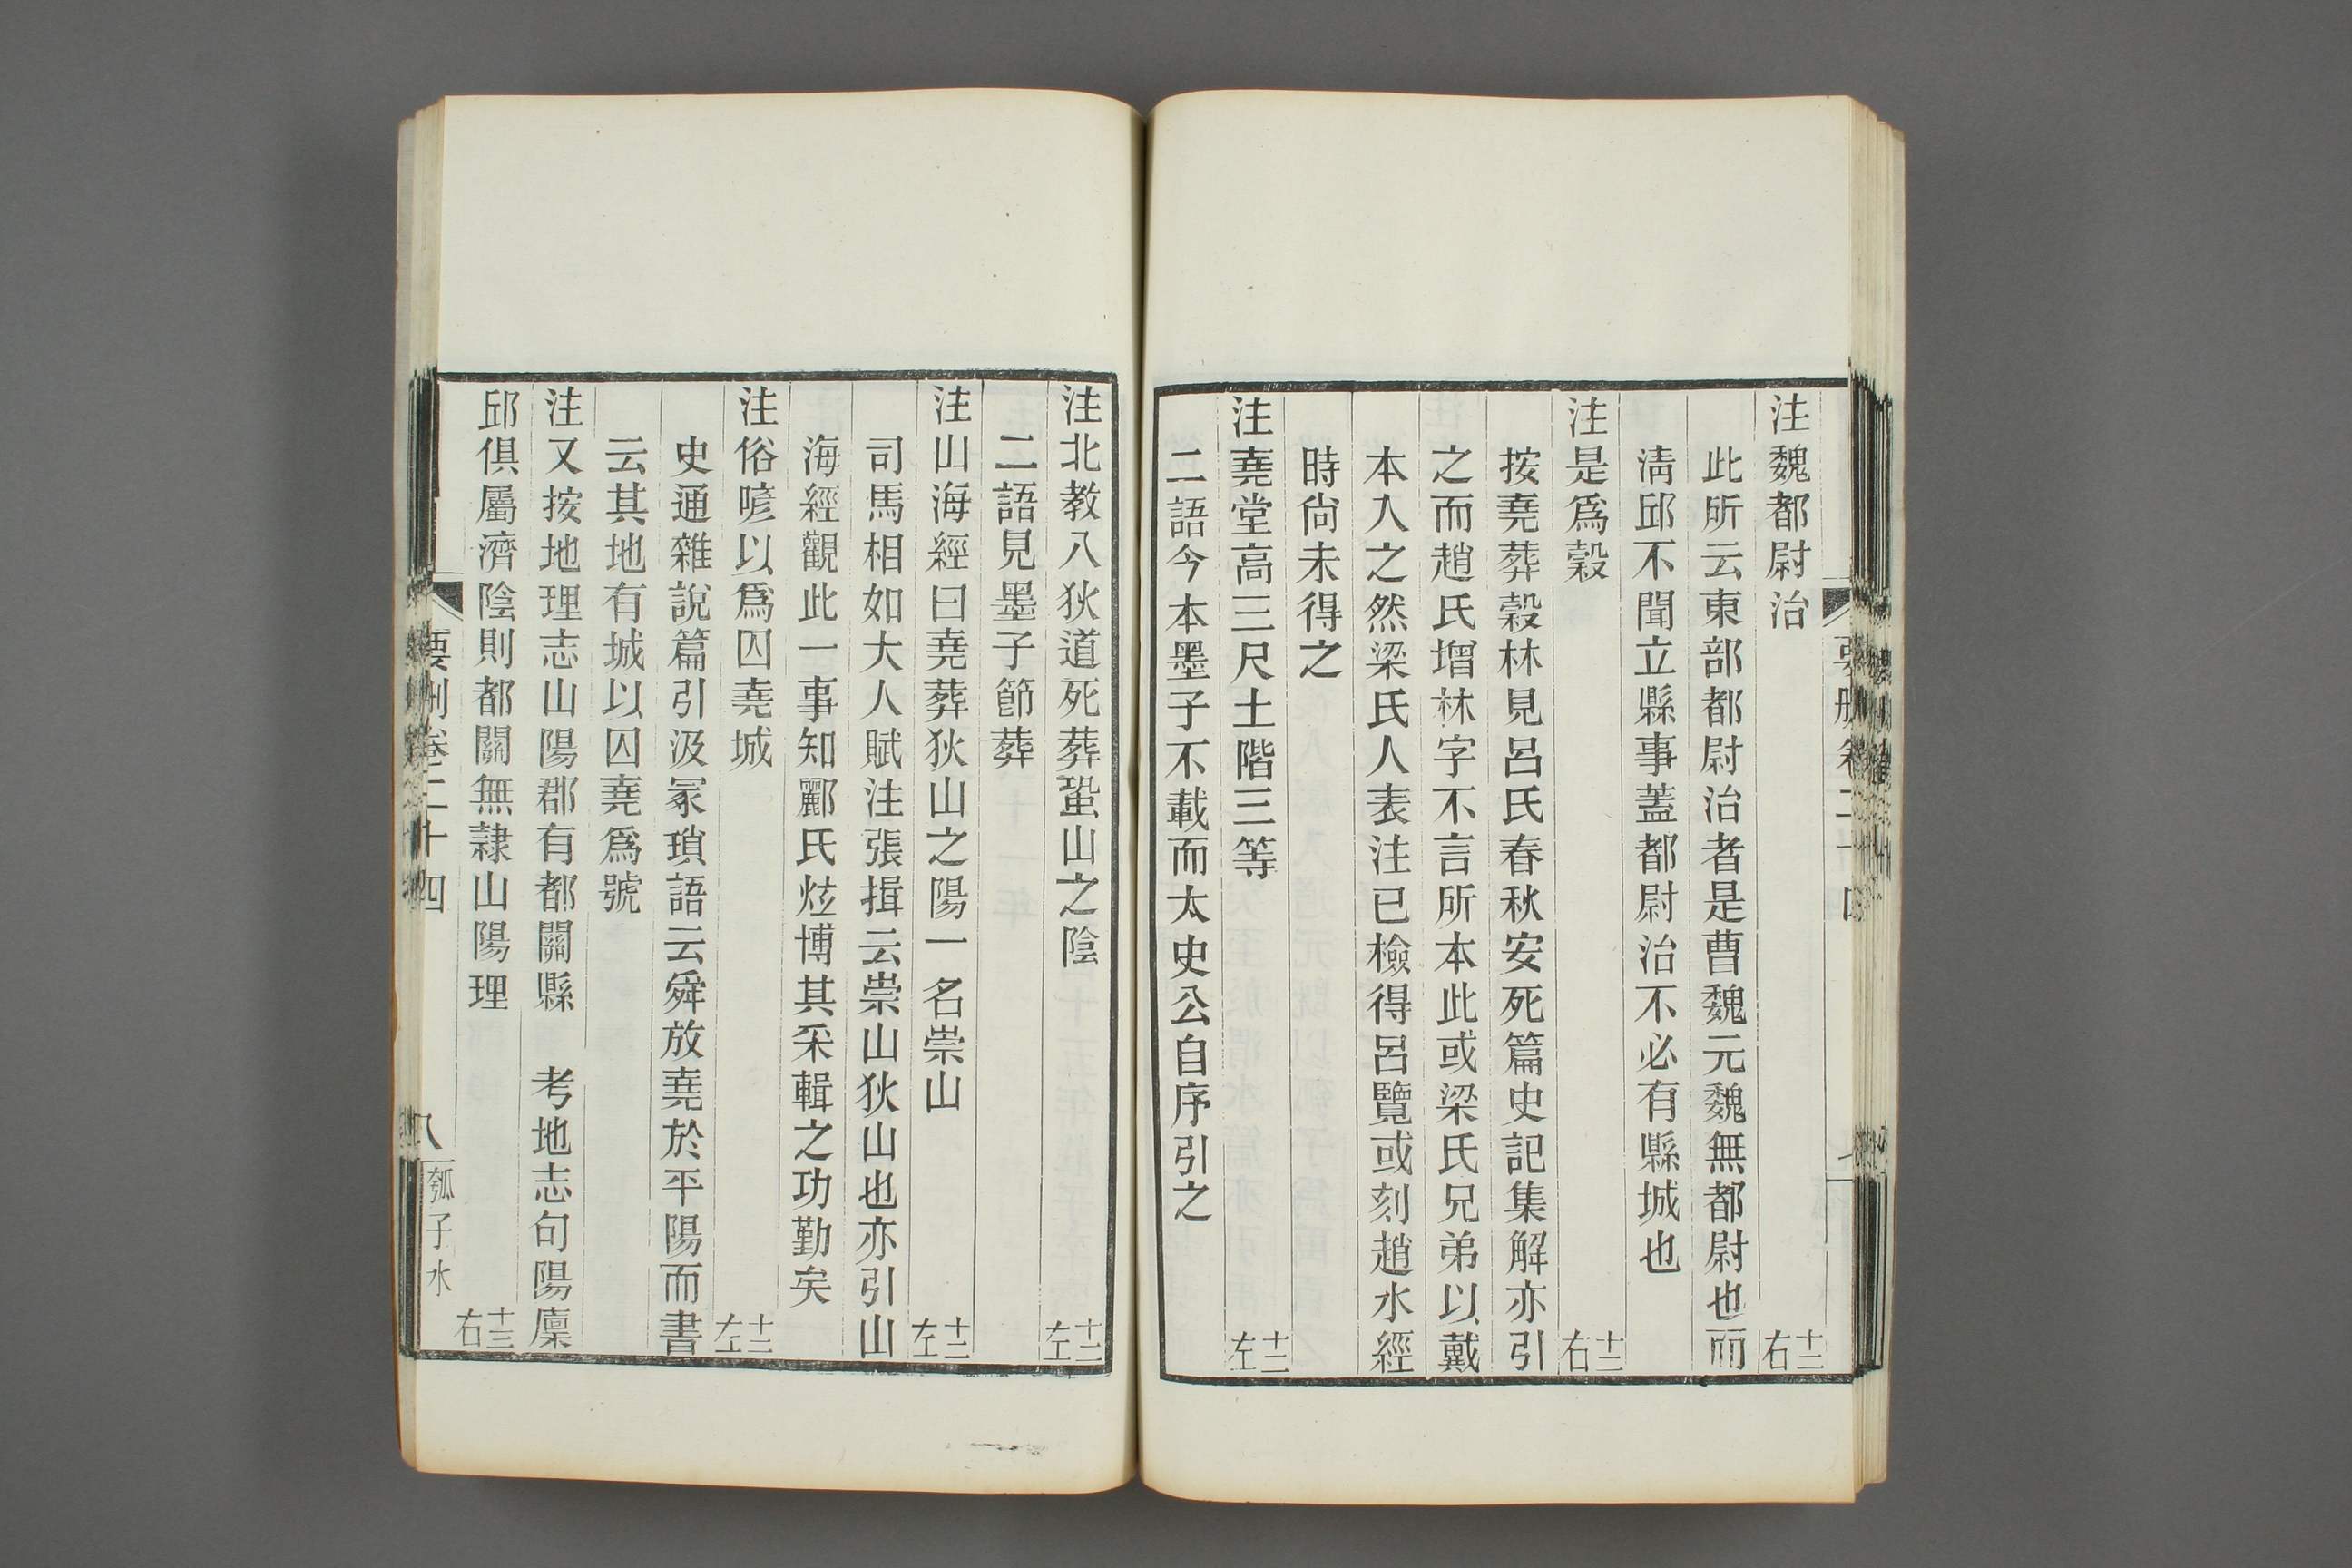 注魏都尉治 十二右
此所云東部都尉治者是曹魏元魏無都尉也而
淸邱不聞立縣事蓋都尉治不必有縣城也
注是爲穀 十二右
按堯葬穀林見呂氏春秋安死篇史記集解亦引
之而趙氏增林字不言所本此或梁氏兄弟以戴
本入之然梁氏人表注已檢得呂覽或刻趙水經
時尙未得之
注堯堂高三尺土階三等 十二左
二語今本墨子不載而太史公自序引之
注北教八狄道死葬蛩山之陰 十二左
二語見墨子節葬
注山海經曰堯葬狄山之陽一名崇山 十二左
司馬相如大人賦注張揖云崇山狄山也亦引山
海經觀此一事知酈氏炫博其采輯之功勤矣
注俗喭以爲囚堯城 十二左
史通雜說篇引汲冢瑣語云舜放堯於平陽而書
云其地有城以囚堯爲號
注又按地理志山陽郡有都關縣 考地志句陽廩
邱俱屬濟陰則都關無隷山陽理 十三右
要刪卷二十四 八 瓠子水